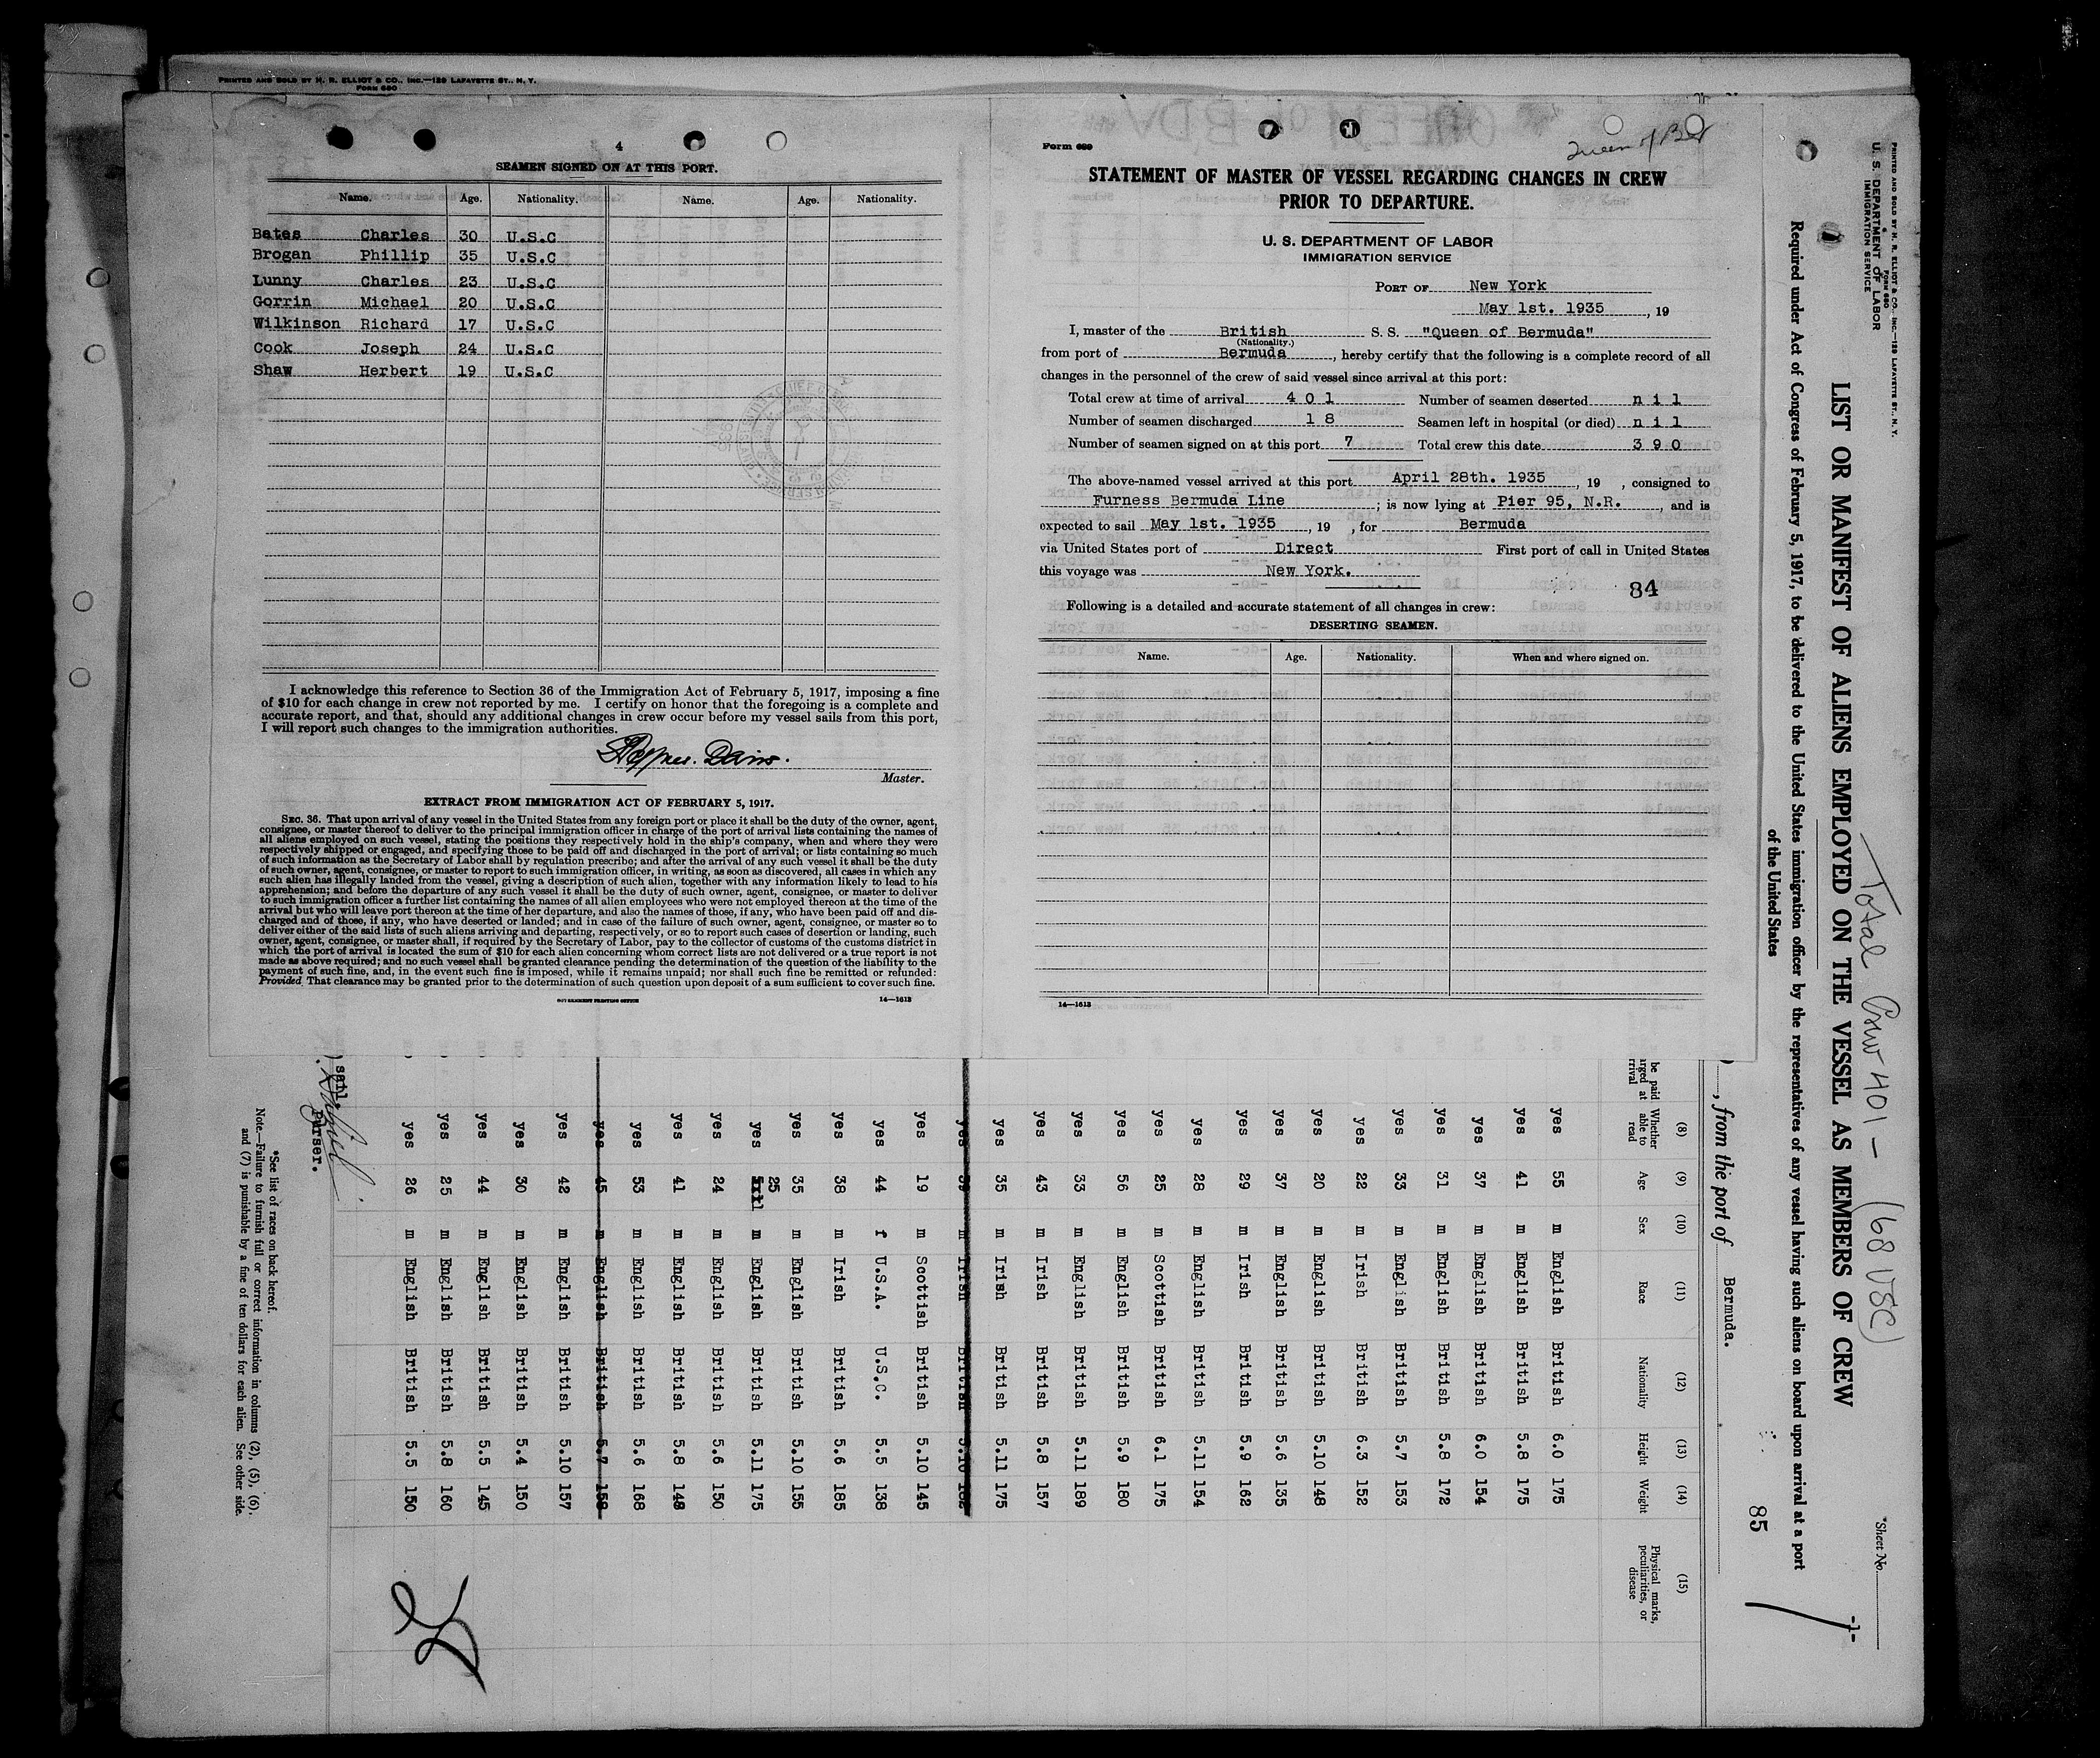 PRINTED AND SOLD BY H. R. ELLIOT & CO., INC.—129 LAFAYETTE ST., N. Y.
FORM 680
4
SEAMEN SIGNED ON AT THIS PORT.
Name. Age. Nationality. Name. Age. Nationality.
Bates Charles 30 U.S.C
Brogan Phillip 35 U.S.C
Lunny Charles 23 U.S.C
Gorrin Michael 20 U.S.C
Wilkinson Richard 17 U.S.C
Cook Joseph 24 U.S.C
Shaw Herbert 19 U.S.C
I acknowledge this reference to Section 36 of the Immigration Act of February 5, 1917, imposing a fine
of $10 for each change in crew not reported by me. I certify on honor that the foregoing is a complete and
accurate report, and that, should any additional changes in crew occur before my vessel sails from this port,
I will report such changes to the immigration authorities.
Davis.
Master.
EXTRACT FROM IMMIGRATION ACT OF FEBRUARY 5, 1917.
SEC. 36. That upon arrival of any vessel in the United States from any foreign port or place it shall be the duty of the owner, agent,
consignee, or master thereof to deliver to the principal immigration officer in charge of the port of arrival lists containing the names of
all aliens employed on such vessel, stating the positions they respectively hold in the ship's company, when and where they were
respectively shipped or engaged, and specifying those to be paid off and discharged in the port of arrival; or lists containing so much
of such information as the Secretary of Labor shall by regulation prescribe; and after the arrival of any such vessel it shall be the duty
of such owner, agent, consignee, or master to report to such immigration officer, in writing, as soon as discovered, all cases in which any
such alien has illegally landed from the vessel, giving a description of such alien, together with any information likely to lead to his
apprehension; and before the departure of any such vessel it shall be the duty of such owner, agent, consignee, or master to deliver
to such immigration officer a further list containing the names of all alien employees who were not employed thereon at the time of the
arrival but who will leave port thereon at the time of her departure, and also the names of those, if any, who have been paid off and dis-
charged and of those, if any, who have deserted or landed; and in case of the failure of such owner, agent, consignee, or master so to
deliver either of the said lists of such aliens arriving and departing, respectively, or so to report such cases of desertion or landing, such
owner, agent, consignee, or master shall, if required by the Secretary of Labor, pay to the collector of customs of the customs district in
which the port of arrival is located the sum of $10 for each alien concerning whom correct lists are not delivered or a true report is not
made as above required; and no such vessel shall be granted clearance pending the determination of the question of the liability to the
payment of such fine, and, in the event such fine is imposed, while it remains unpaid; nor shall such fine be remitted or refunded:
Provided That clearance may be granted prior to the determination of such question upon deposit of a sum sufficient to cover such fine.
GOVERNMENT PRINTING OFFICE 14—1613
Form 689
Queen of Ber
STATEMENT OF MASTER OF VESSEL REGARDING CHANGES IN CREW
PRIOR TO DEPARTURE.
U. S. DEPARTMENT OF LABOR
IMMIGRATION SERVICE
PORT OF New York
May 1st. 1935, 19
I, master of the British S. S. "Queen of Bermuda"
(Nationality.)
from port of Bermuda, hereby certify that the following is a complete record of all
changes in the personnel of the crew of said vessel since arrival at this port:
Total crew at time of arrival 401 Number of seamen deserted nil
Number of seamen discharged 18 Seamen left in hospital (or died) nil
Number of seamen signed on at this port 7 Total crew this date 390
The above-named vessel arrived at this port April 28th. 1935, 19 , consigned to
Furness Bermuda Line; is now lying at Pier 95, N.R., and is
expected to sail May 1st. 1935, 19 , for Bermuda
via United States port of Direct First port of call in United States
this voyage was New York.
84
Following is a detailed and accurate statement of all changes in crew:
DESERTING SEAMEN.
Name. Age. Nationality. When and where signed on.
14—1613
PRINTED AND SOLD BY H. R. ELLIOT & CO., INC.—129 LAFAYETTE ST., N. Y.
FORM 680
U. S. DEPARTMENT OF LABOR
IMMIGRATION SERVICE
*Sheet No. -1-
Total Crew 401 - (68 USC)
LIST OR MANIFEST OF ALIENS EMPLOYED ON THE VESSEL AS MEMBERS OF CREW
Required under Act of Congress of February 5, 1917, to be delivered to the United States immigration officer by the representatives of any vessel having such aliens on board upon arrival at a port
of the United States
85
, from the port of Bermuda.
(8) (9) (10) (11) (12) (13) (14) (15)
be paid
Whether able to read Age Sex Race Nationality Height Weight Physical marks, peculiarities, or disease
yes 55 m English British 6.0 175
yes 41 m English British 5.8 175
yes 37 m English British 6.0 154
yes 31 m English British 5.8 172
yes 33 m English British 5.7 153
yes 22 m Irish British 6.3 152
yes 20 m English British 5.10 148
yes 37 m English British 5.6 135
yes 29 m Irish British 5.9 162
yes 28 m English British 5.11 154
yes 25 m Scottish British 6.1 175
yes 56 m English British 5.9 180
yes 33 m English British 5.11 189
yes 43 m Irish British 5.8 157
yes 35 m Irish British 5.11 175
yes 39 m Irish British 5.10
yes 19 m Scottish British 5.10 145
yes 44 f U.S.A. U.S.C. 5.5 138
yes 38 m Irish British 5.6 185
yes 35 m English British 5.10 155
yes 25 m English British 5.11 175
yes 24 m English British 5.6 150
yes 41 m English British 5.8 148
yes 53 m English British 5.6 168
yes 45 m English British 5.7
yes 42 m English British 5.10 157
yes 30 m English British 5.4 150
yes 44 m English British 5.5 145
yes 25 m English British 5.8 160
yes 26 m English British 5.5 150
) sail.
Purser.
*See list of races on back hereof.
Note.—Failure to furnish full or correct information in columns (2), (5), (6),
and (7) is punishable by a fine of ten dollars for each alien. See other side.